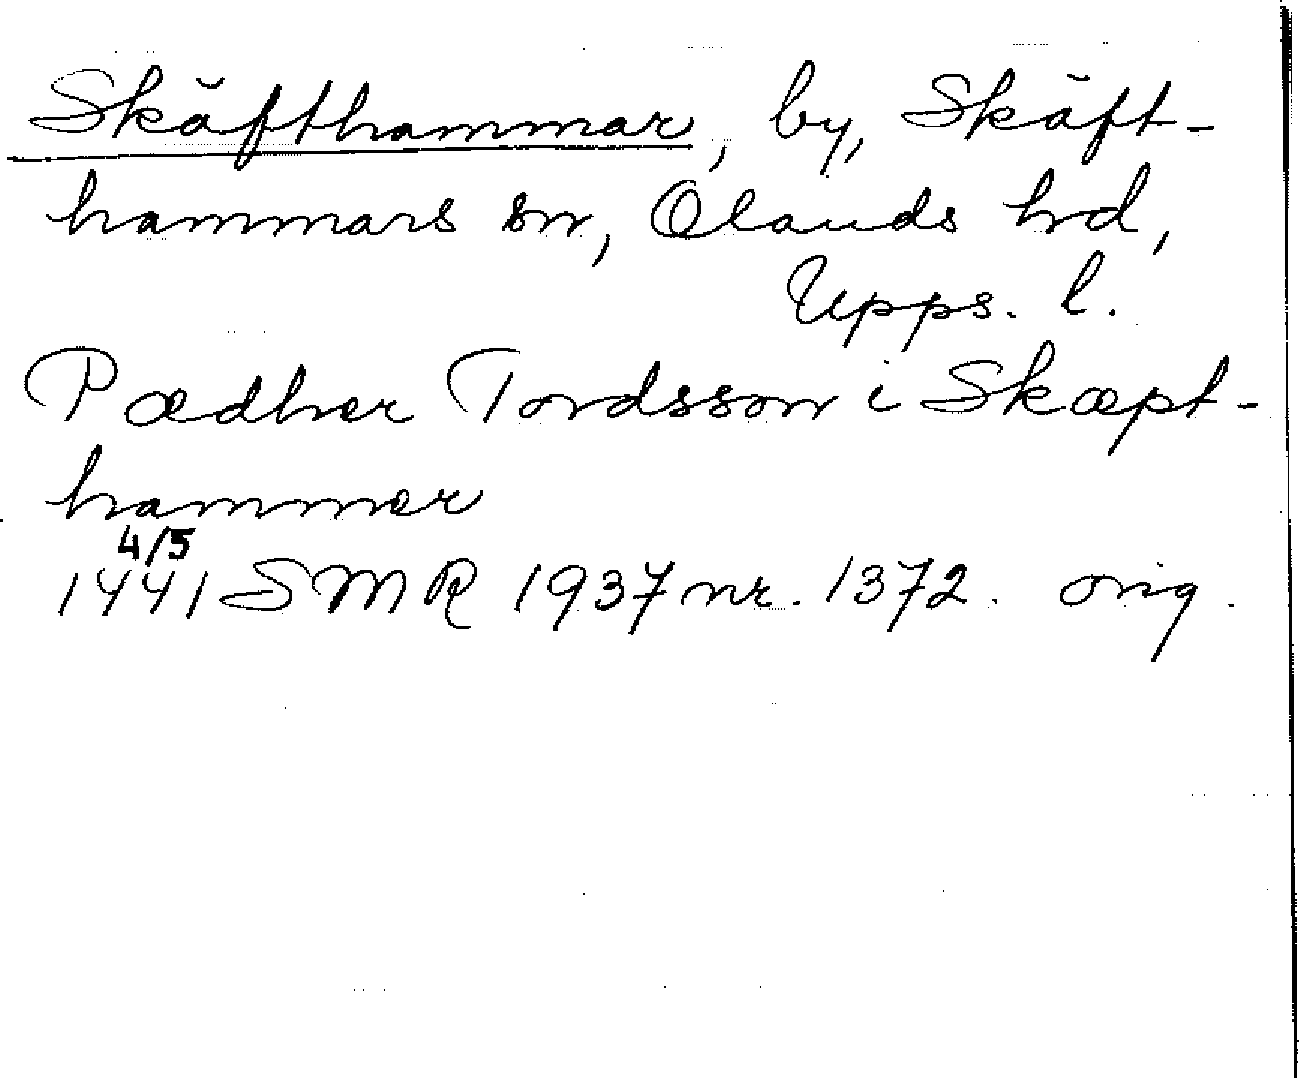 Skäfthammar, by, Skäft-
hammars sn, Olands hd,
Upps. l.
Pædher Tordsson i Skæpt-
hammer
4/5
1441 SMR 1937 nr. 1372. orig.